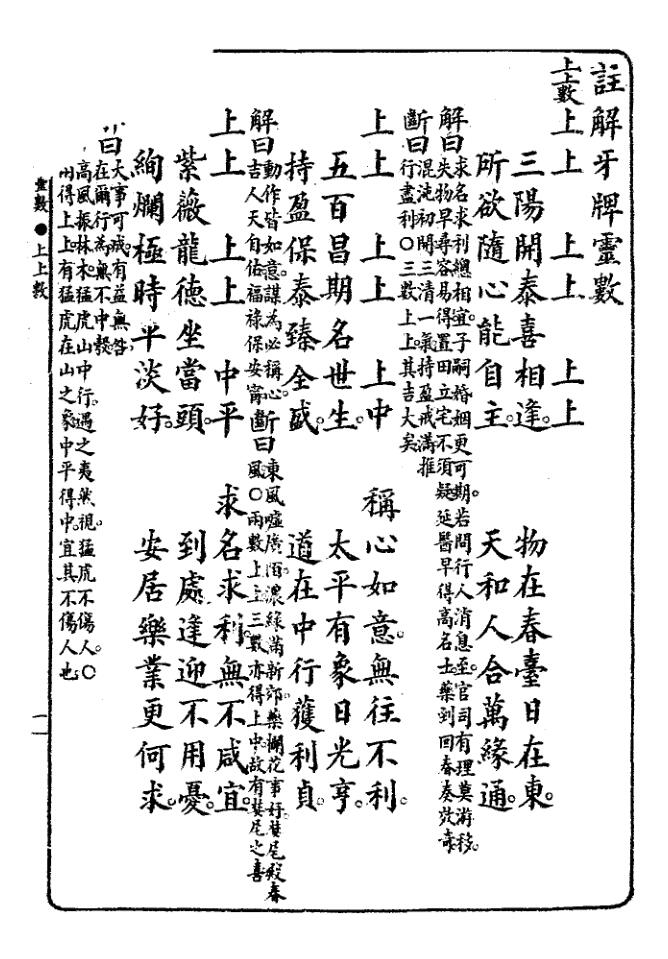 註解牙牌靈數
上上數
上上　上上　上上
三陽開泰喜相逢。物在春臺日在東。
所欲隨心能自主。天和人合萬緣通。
解曰
求名求利總相宜。子嗣婚姻更可期。若問行人消息至。官司有理莫游移。
失物早尋容易得。置田立宅不須疑。延醫早得高名士。藥到回春奏效奇。
斷曰
混沌初開。三清一氣。持盈戒滿。推
行盡利〇三數上上。其吉大矣
上上　上上　上中　稱心如意。無往不利。
五百昌期名世生。太平有象日光亨。
持盈保泰臻全盛。道在中行獲利貞。
解曰
動作皆如意。謀為必稱心。
吉人天自佑。福祿保安甯。
斷曰
東風噓廣陌。濃綠滿新郊。藥欄花事好。婪尾殿春
風〇兩數上上。三數亦得上中。故有婪尾之喜
上上　上上　中平　求名求利。無不咸宜。
紫薇龍德坐當頭。到處逢迎不用憂。
絢爛極時平淡好。安居樂業更何求。
曰
大事可成。有益無咎
在爾行為。無不中彀
高風振林木。猛虎山中行。遇之夷然視。猛虎不傷人。〇
兩得上上。有猛虎在山之象。中平得中。宜其不傷人也。
靈數●上上數